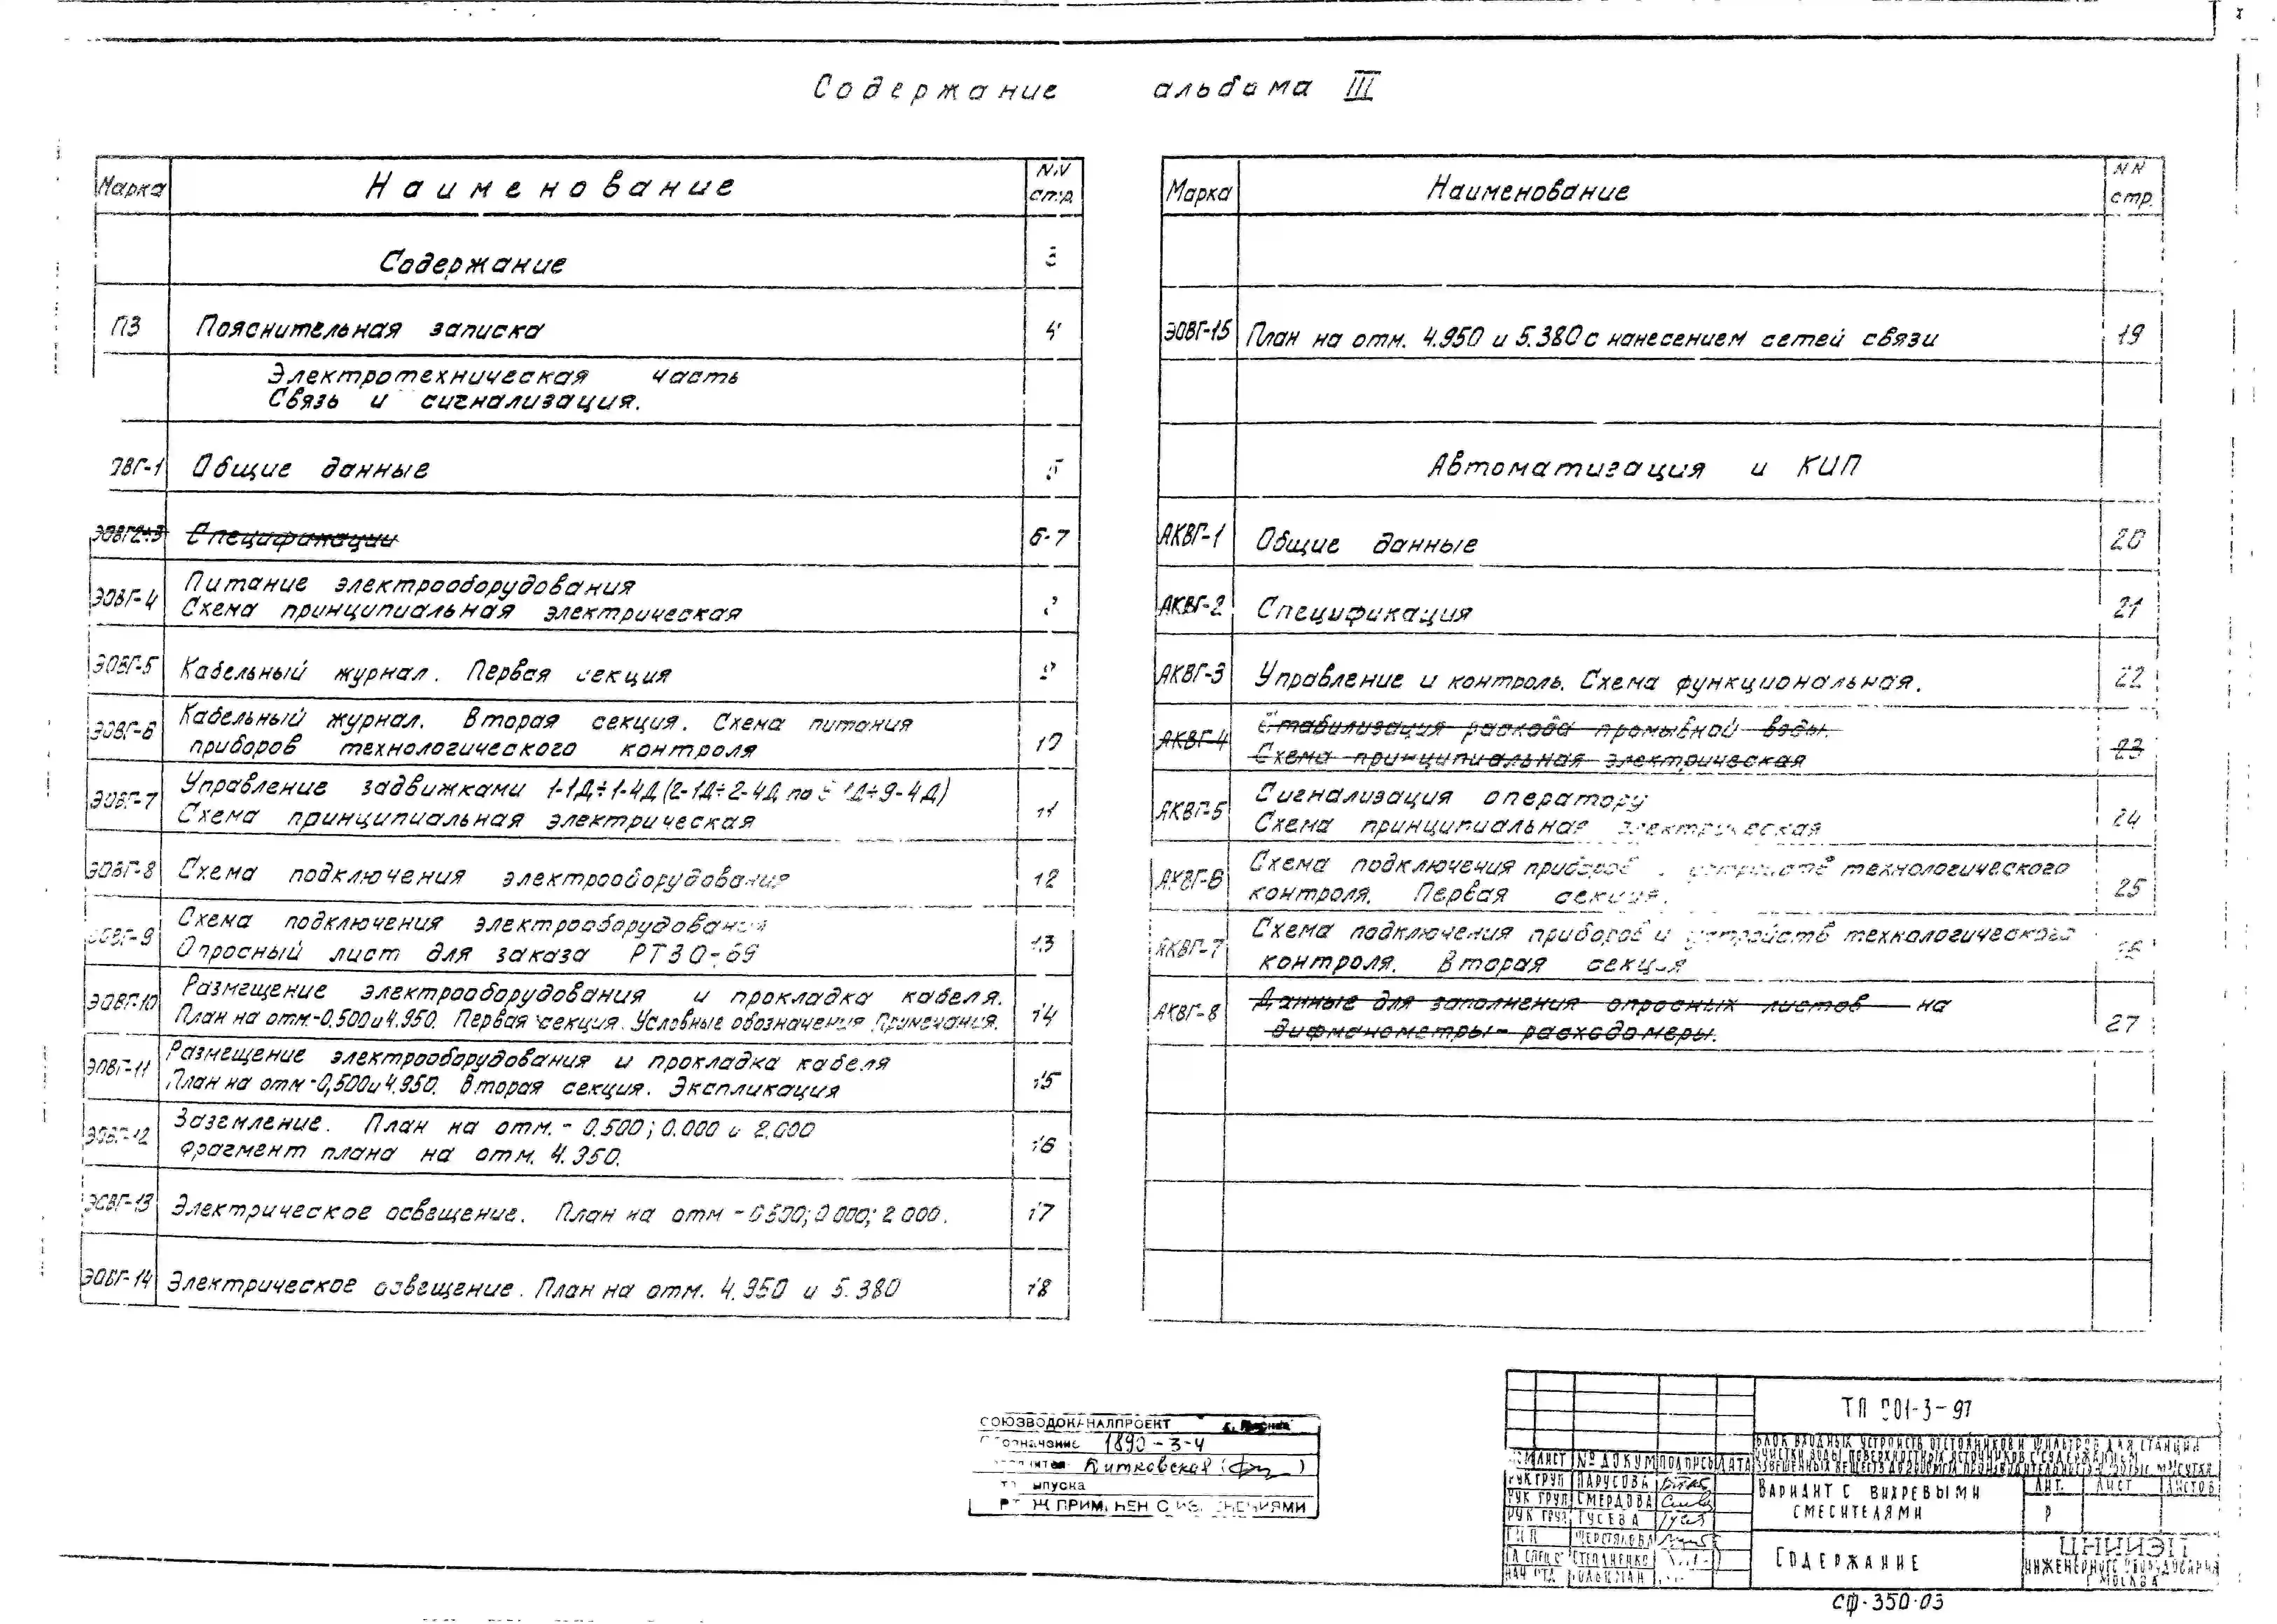 Содержание альбома III
Марка Наименование NN стр.
Содержание 3
ПЗ Пояснительная записка 4
Электротехническая часть
Связь и сигнализация.
ЭОВГ-1 Общие данные 5
ЭОВГ2÷3 Спецификации 6-7
ЭОВГ-4 Питание электрооборудования
Схема принципиальная электрическая
ЭОВГ-5 Кабельный журнал. Первая секция 9
ЭОВГ-6 Кабельный журнал. Вторая секция. Схема питания
приборов технологического контроля 10
ЭОВГ-7 Управление задвижками 1-1Д÷1-4Д (2-1Д÷2-4Д по 9-1Д÷9-4Д)
Схема принципиальная электрическая 11
ЭОВГ-8 Схема подключения электрооборудования 12
ЭОВГ-9 Схема подключения электрооборудования
Опросный лист для заказа РТ30-69 13
ЭОВГ-10 Размещение электрооборудования и прокладка кабеля.
План на отм.-0.500 и 4.950. Первая секция. Условные обозначения Примечания. 14
ЭОВГ-11 Размещение электрооборудования и прокладка кабеля
План на отм-0,500 и 4.950. Вторая секция. Экспликация 15
ЭОВГ-12 Заземление. План на отм. - 0.500; 0.000 и 2.000
Фрагмент плана на отм. 4.950. 16
ЭОВГ-13 Электрическое освещение. План на отм - 0500; 0 000; 2 000. 17
ЭОВГ-14 Электрическое освещение. План на отм. 4.950 и 5.380 18
Марка Наименование NN стр.
ЭОВГ-15 План на отм. 4.950 и 5.380 с нанесением сетей связи 19
Автоматизация и КИП
АКВГ-1 Общие данные 20
АКВГ-2 Спецификация 21
АКВГ-3 Управление и контроль. Схема функциональная. 22
АКВГ-4 Стабилизация расхода промывной воды.
Схема принципиальная электрическая 23
АКВГ-5 Сигнализация оператору
Схема принципиальная электрическая 24
АКВГ-6 Схема подключения приборов устройств технологического
контроля. Первая секция. 25
АКВГ-7 Схема подключения приборов и устройств технологического
контроля. Вторая секция 26
АКВГ-8 Данные для заполнения опросных листов на
дифманометры-расходомеры. 27
СОЮЗВОДОКАНАЛПРОЕКТ
1890-3-4
Витковская
выпуска
ПРИМЕНЕН С ИЗМЕНЕНИЯМИ
ТП 901-3-97
БЛОК ВХОДНЫХ УСТРОЙСТВ ОТСТОЙНИКОВ И ФИЛЬТРОВ ДЛЯ СТАНЦИИ
ОЧИСТКИ ВОДЫ ПОВЕРХНОСТНЫХ ИСТОЧНИКОВ С СОДЕРЖАНИЕМ
ЛИСТ № ДОКУМ ПОДПИСЬ ДАТА
РУК ГРУП ПАРУСОВА
РУК ГРУП СМЕРДОВА
РУК ГРУП ГУСЕВА
ГИП ШЕРСТЯКОВА
ГЛ СПЕЦ СТЕПАНЕНКО
НАЧ ОТД
ВАРИАНТ С ВИХРЕВЫМИ
СМЕСИТЕЛЯМИ
ЛИТ. ЛИСТ ЛИСТОВ
Р
СОДЕРЖАНИЕ
ЦНИИЭП
ИНЖЕНЕРНОГО ОБОРУДОВАНИЯ
Г МОСКВА
СФ-350-03